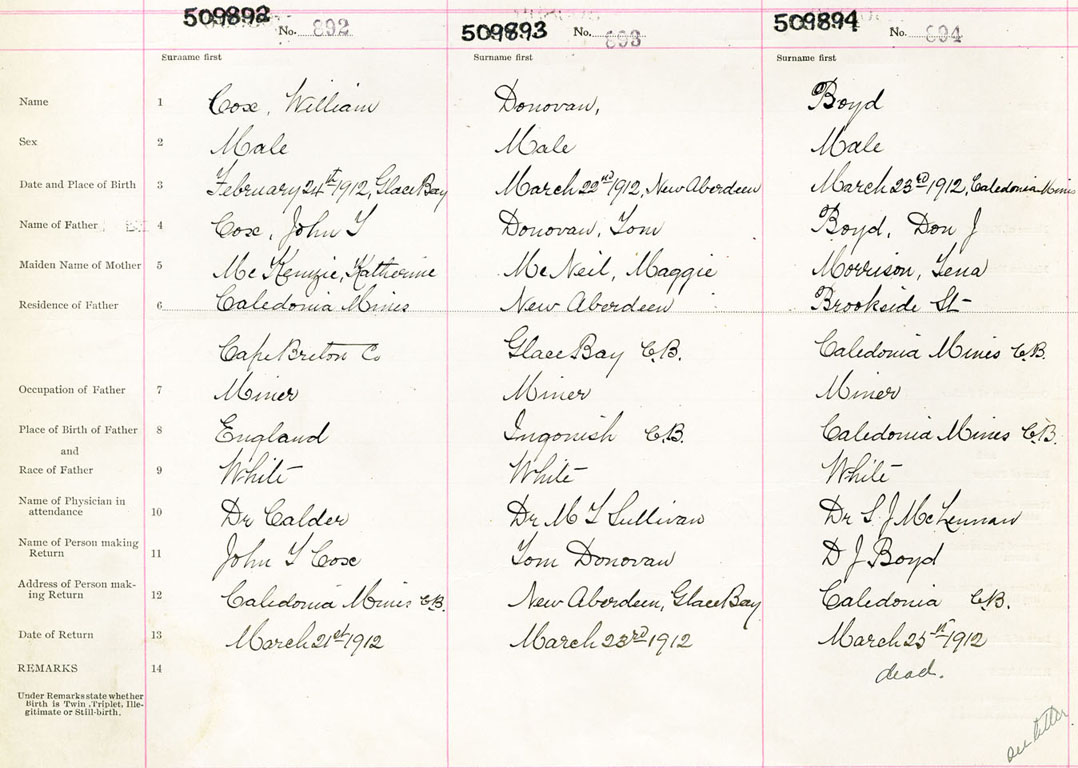 509892 No. 892 509893 No. 893 509894 No. 894
Surname first Surname first Surname first
Name 1 Cox, William Donovan, Boyd
Sex 2 Male Male Male
Date and Place of Birth 3 February 24th 1912, Glace Bay March 22nd 1912, New Aberdeen March 23rd 1912, Caledonia Mines
Name of Father 4 Cox, John T Donovan, Tom Boyd, Don J
Maiden Name of Mother 5 McKenzie, Katherine McNeil, Maggie Morrison, Lena
Residence of Father 6 Caledonia Mines New Aberdeen Brookside St
Cape Breton Co Glace Bay C.B. Caledonia Mines C.B.
Occupation of Father 7 Miner Miner Miner
Place of Birth of Father 8 England Ingonish C.B. Caledonia Mines C.B.
and
Race of Father 9 White White White
Name of Physician in
attendance 10 Dr Calder Dr M T Sullivan Dr S J McLennan
Name of Person making
Return 11 John T Cox Tom Donovan D J Boyd
Address of Person mak-
ing Return 12 Caledonia Mines C.B. New Aberdeen, Glace Bay Caledonia C.B.
Date of Return 13 March 21st 1912 March 23rd 1912 March 25th 1912
REMARKS 14 dead.
Under Remarks state whether
Birth is Twin, Triplet, Ille-
gitimate or Still-birth.
see letter